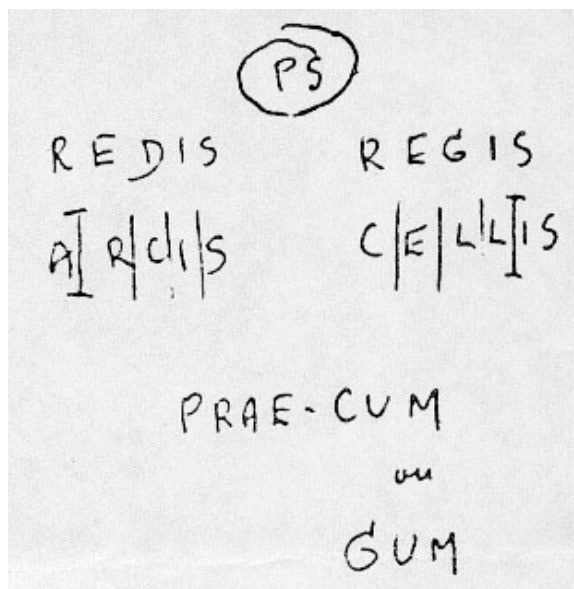 PS
REDIS REGIS
A|R|C|I|S C|E|L|L|IS
PRAE-CUM
ou
GUM